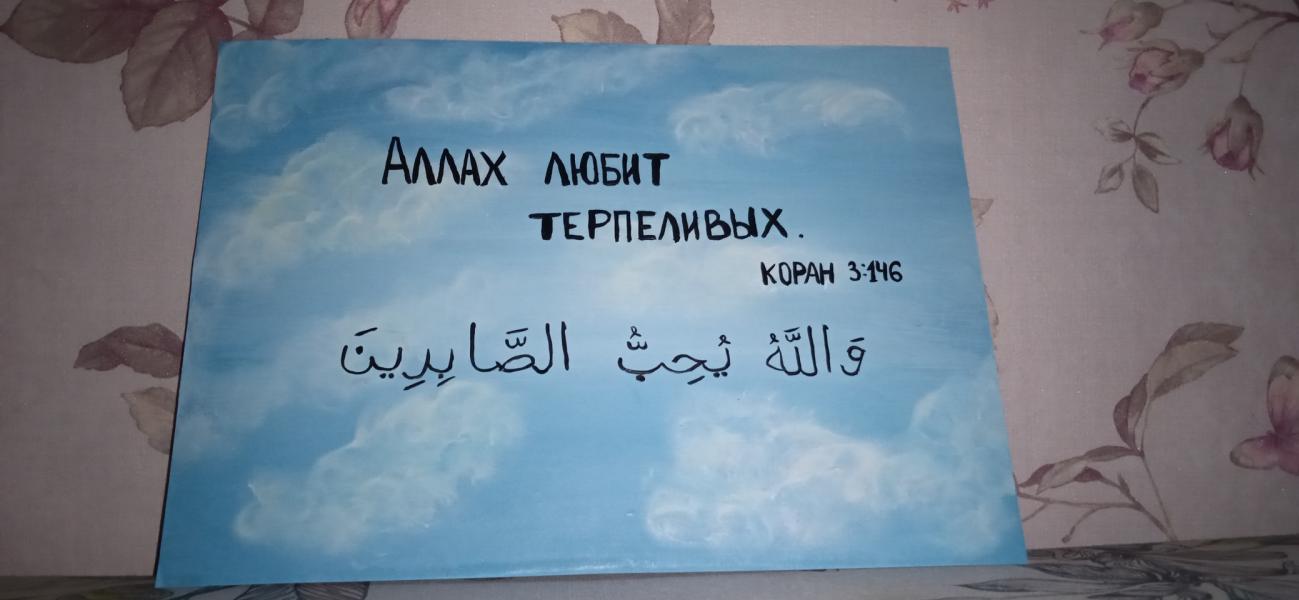 Аллах любит
терпеливых.
Коран 3:146
وَاللَّهُ يُحِبُّ الصَّابِرِينَ